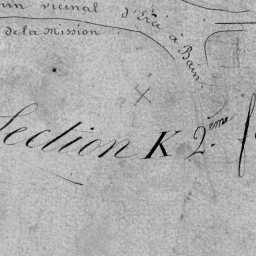 vicinal d'Ercé à Bain
de la Mission
Section K 2.ème